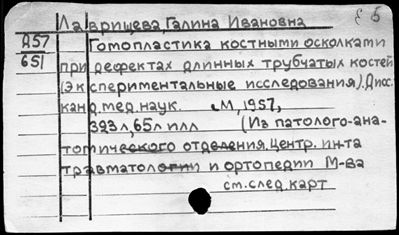 Лаврищева, Галина Ивановна
Д57 Гомопластика костными осколками
651 при дефектах длинных трубчатых костей
(экспериментальные исследования). Дисс.
канд. мед. наук. М, 1957,
393 л, 65 л илл (Из патолого-ана-
томического отделения Центр. ин-та
травматологии и ортопедии М-ва
см. след. карт